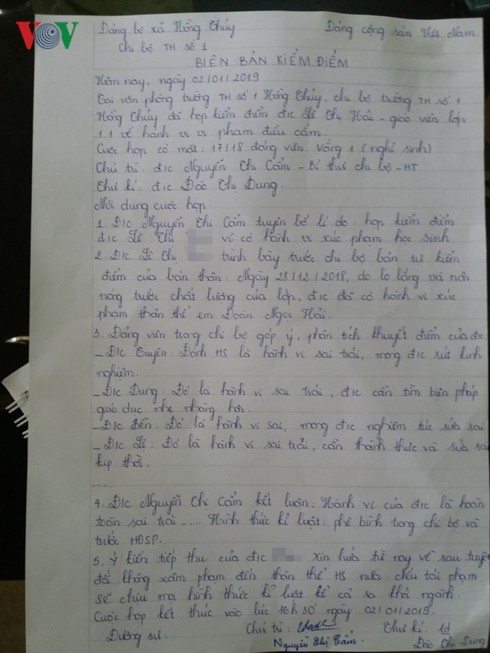 VOV
Đảng bộ xã Hồng Thủy Đảng cộng sản Việt Nam
Chi bộ TH số 1
BIÊN BẢN KIỂM ĐIỂM
Hôm nay, ngày 02/01/2019
Tại văn phòng trường TH số 1 Hồng Thủy, chi bộ trường TH số 1
Hồng Thủy đã họp kiểm điểm đ/c Lê Thị Hải - giáo viên lớp
1.1 về hành vi vi phạm điều cấm.
Cuộc họp có mặt: 17/18 đảng viên. Vắng 1 (nghỉ sinh)
Chủ trì: đ/c Nguyễn Thị Cẩm - Bí thư chi bộ - HT
Thư kí: đ/c Đào Thị Dung.
Nội dung cuộc họp
1. Đ/c Nguyễn Thị Cẩm tuyên bố lí do họp kiểm điểm
đ/c Lê Thị vì có hành vi xúc phạm học sinh.
2. Đ/c Lê Thị trình bày trước chi bộ bản tự kiểm
điểm của bản thân. Ngày 28/12/2018, do lo lắng và nôn
nóng trước chất lượng của lớp, đ/c đã có hành vi xúc
phạm thân thể em Đoàn Ngọc Hải.
3. Đảng viên trong chi bộ góp ý, phân tích khuyết điểm của đ/c
- Đ/c Quyên: Đánh HS là hành vi sai trái, mong đ/c rút kinh
nghiệm.
- Đ/c Dung: Đó là hành vi sai trái, đ/c cần tìm biện pháp
giáo dục nhẹ nhàng hơn.
- Đ/c Bền: Đó là hành vi sai, mong đ/c nghiêm túc sửa sai
- Đ/c Lê: Đó là hành vi sai trái, cần thành thực và sửa sai
kịp thời.
...
4. Đ/c Nguyễn Thị Cẩm kết luận: Hành vi của đ/c là hoàn
toàn sai trái .... Hình thức kỉ luật: phê bình trong chi bộ và
trước HĐSP.
5. Ý kiến tiếp thu của đ/c Xin hứa từ nay về sau tuyệt
đối không xâm phạm đến thân thể HS nữa. Nếu tái phạm
sẽ chịu mọi hình thức kỉ luật kể cả sa thải ngành.
Cuộc họp kết thúc vào lúc 16h30 ngày 02/01/2019.
Đương sự: Chủ trì: Thư kí:
Nguyễn Thị Cẩm Đào Thị Dung